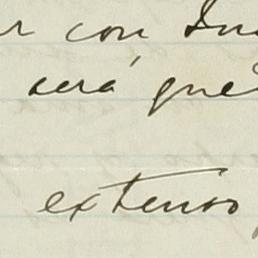 r con
será que
extenso